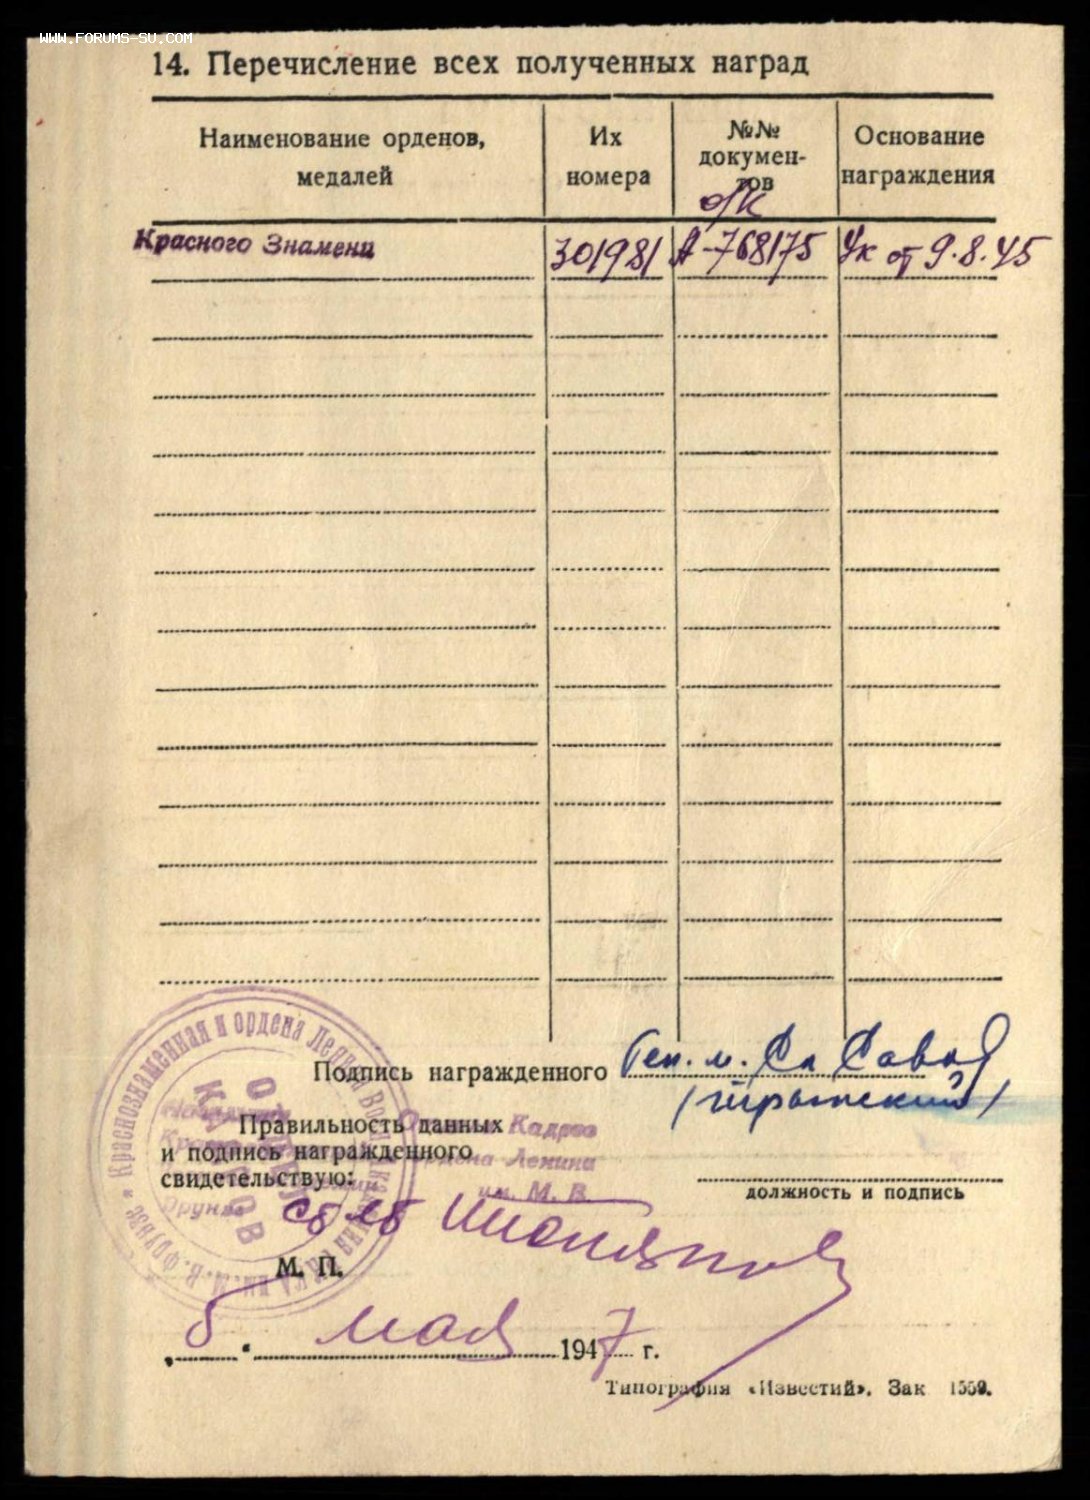 WWW.FORUMS-SU.COM
14. Перечисление всех полученных наград
Наименование орденов, медалей
Их номера
№№ докумен-тов
Основание награждения
о/к
Красного Знамени 301981 А-768175 Ук от 9.8.45
Подпись награжденного Ген. м.
Правильность данных
и подпись награжденного
свидетельствую:
должность и подпись
Краснознаменная и ордена Ленина
им. М. В. Фрунзе
ОТДЕЛ КАДРОВ
Кадров
ордена Ленина
им. М. В.
Фрунзе
М. П.
мая 1947 г.
Типография «Известий». Зак 1559.